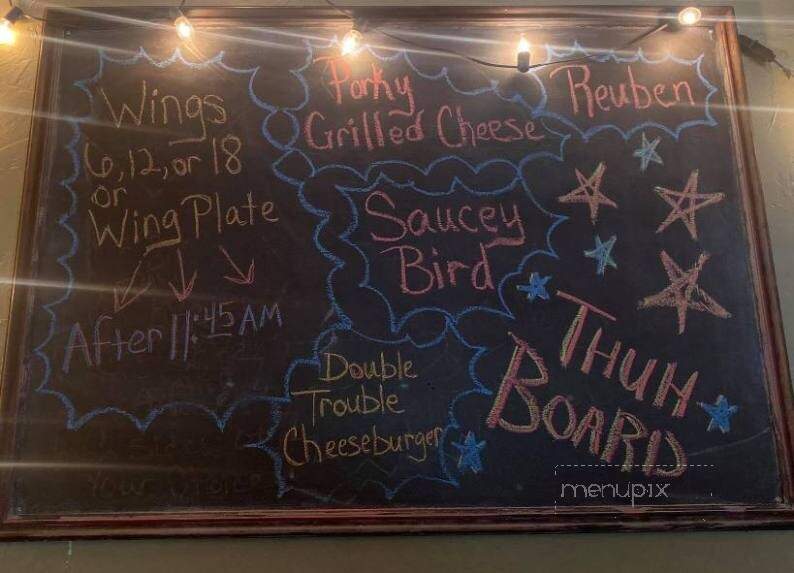 Wings
6, 12, or 18
or
Wing Plate
After 11:45 AM
Porky
Grilled Cheese
Reuben
Saucey
Bird
Double
Trouble
Cheeseburger
THUH
BOARD
menupix